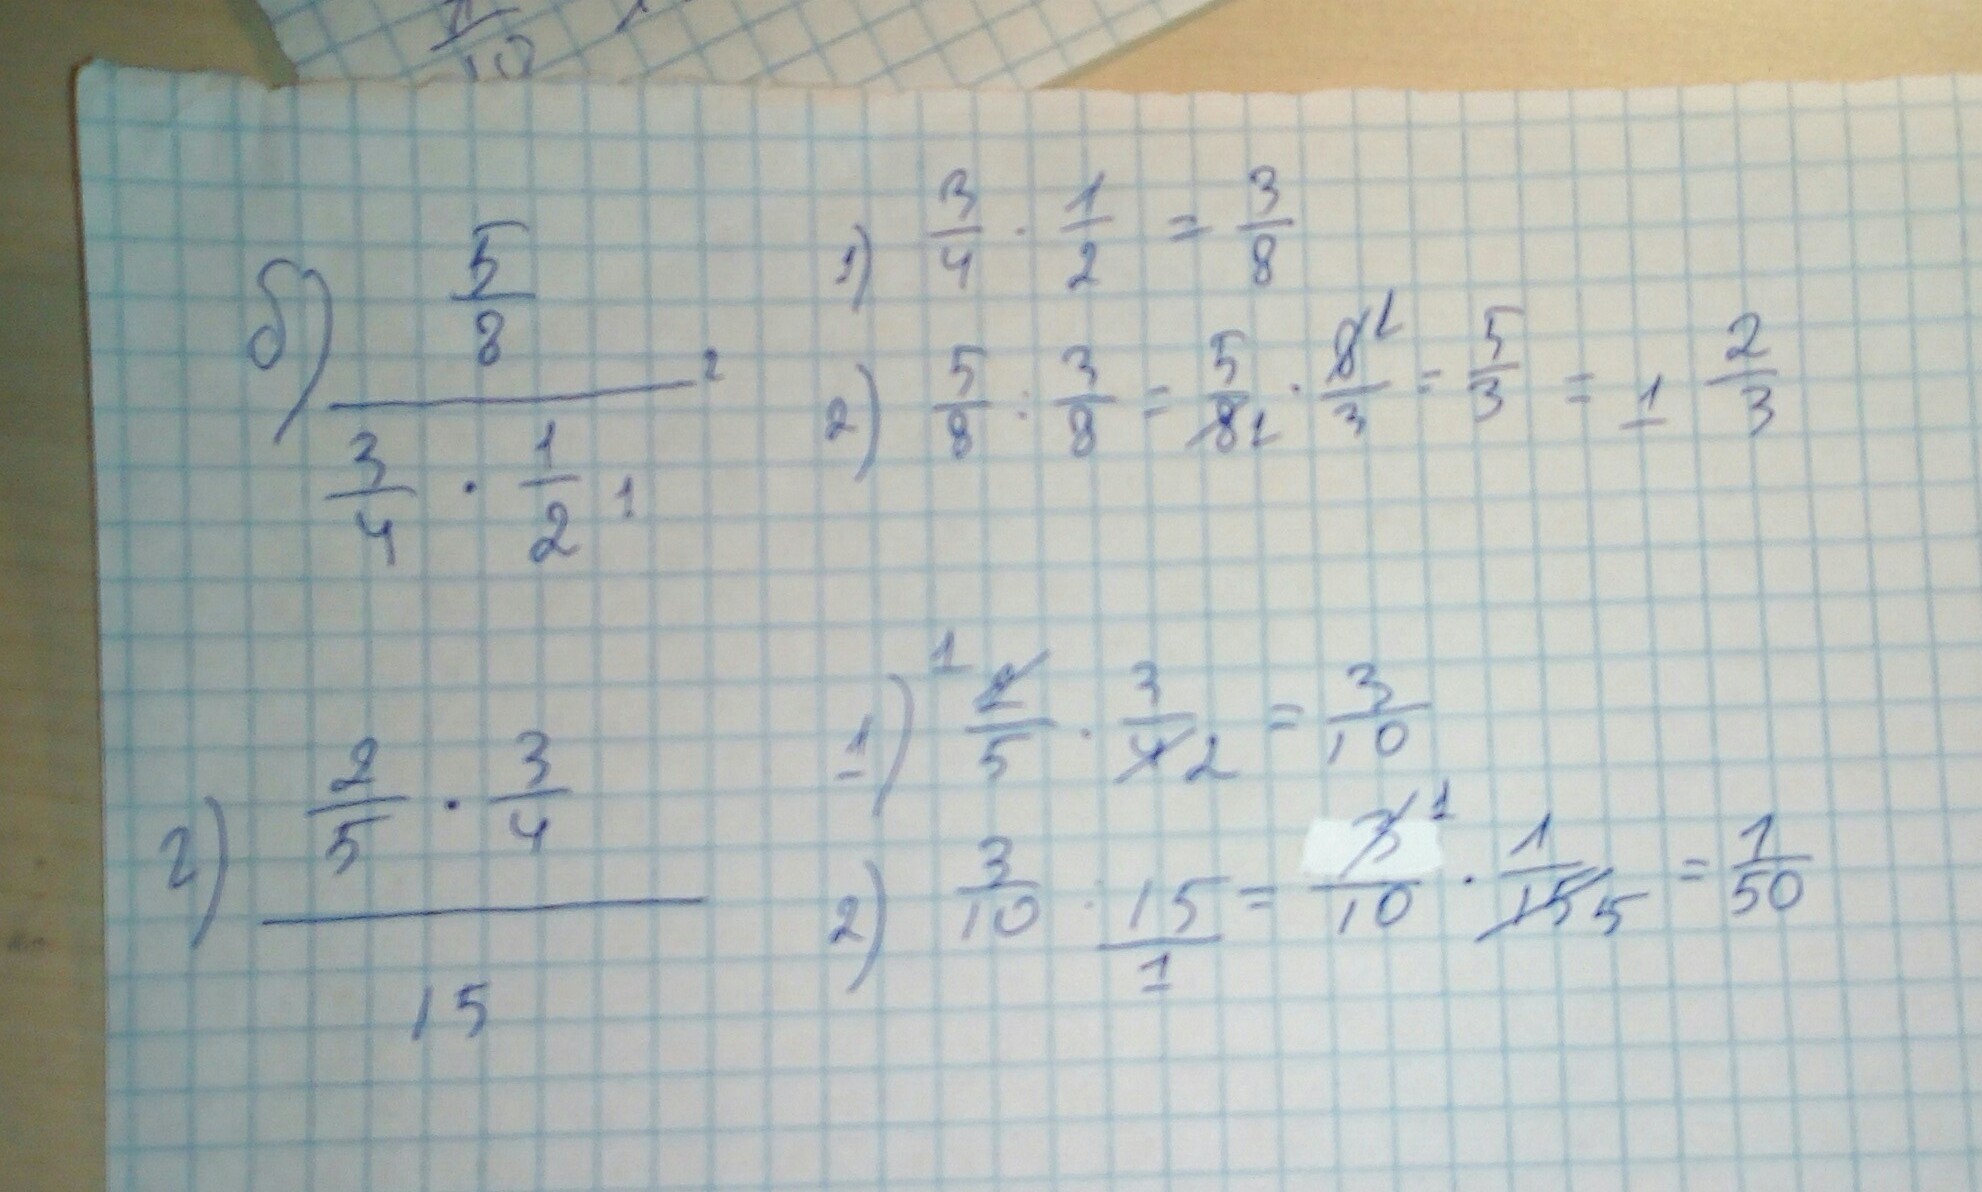 10
б) 5/8 2
3/4 · 1/2 1
1) 3/4 · 1/2 = 3/8
2) 5/8 : 3/8 = 5/8 1 · 8 1/3 = 5/3 = 1 2/3
г) 2/5 · 3/4
15
1) 1 2/5 · 3/4 2 = 3/10
2) 3/10 : 15/1 = 3 1/10 · 1/15 5 = 1/50